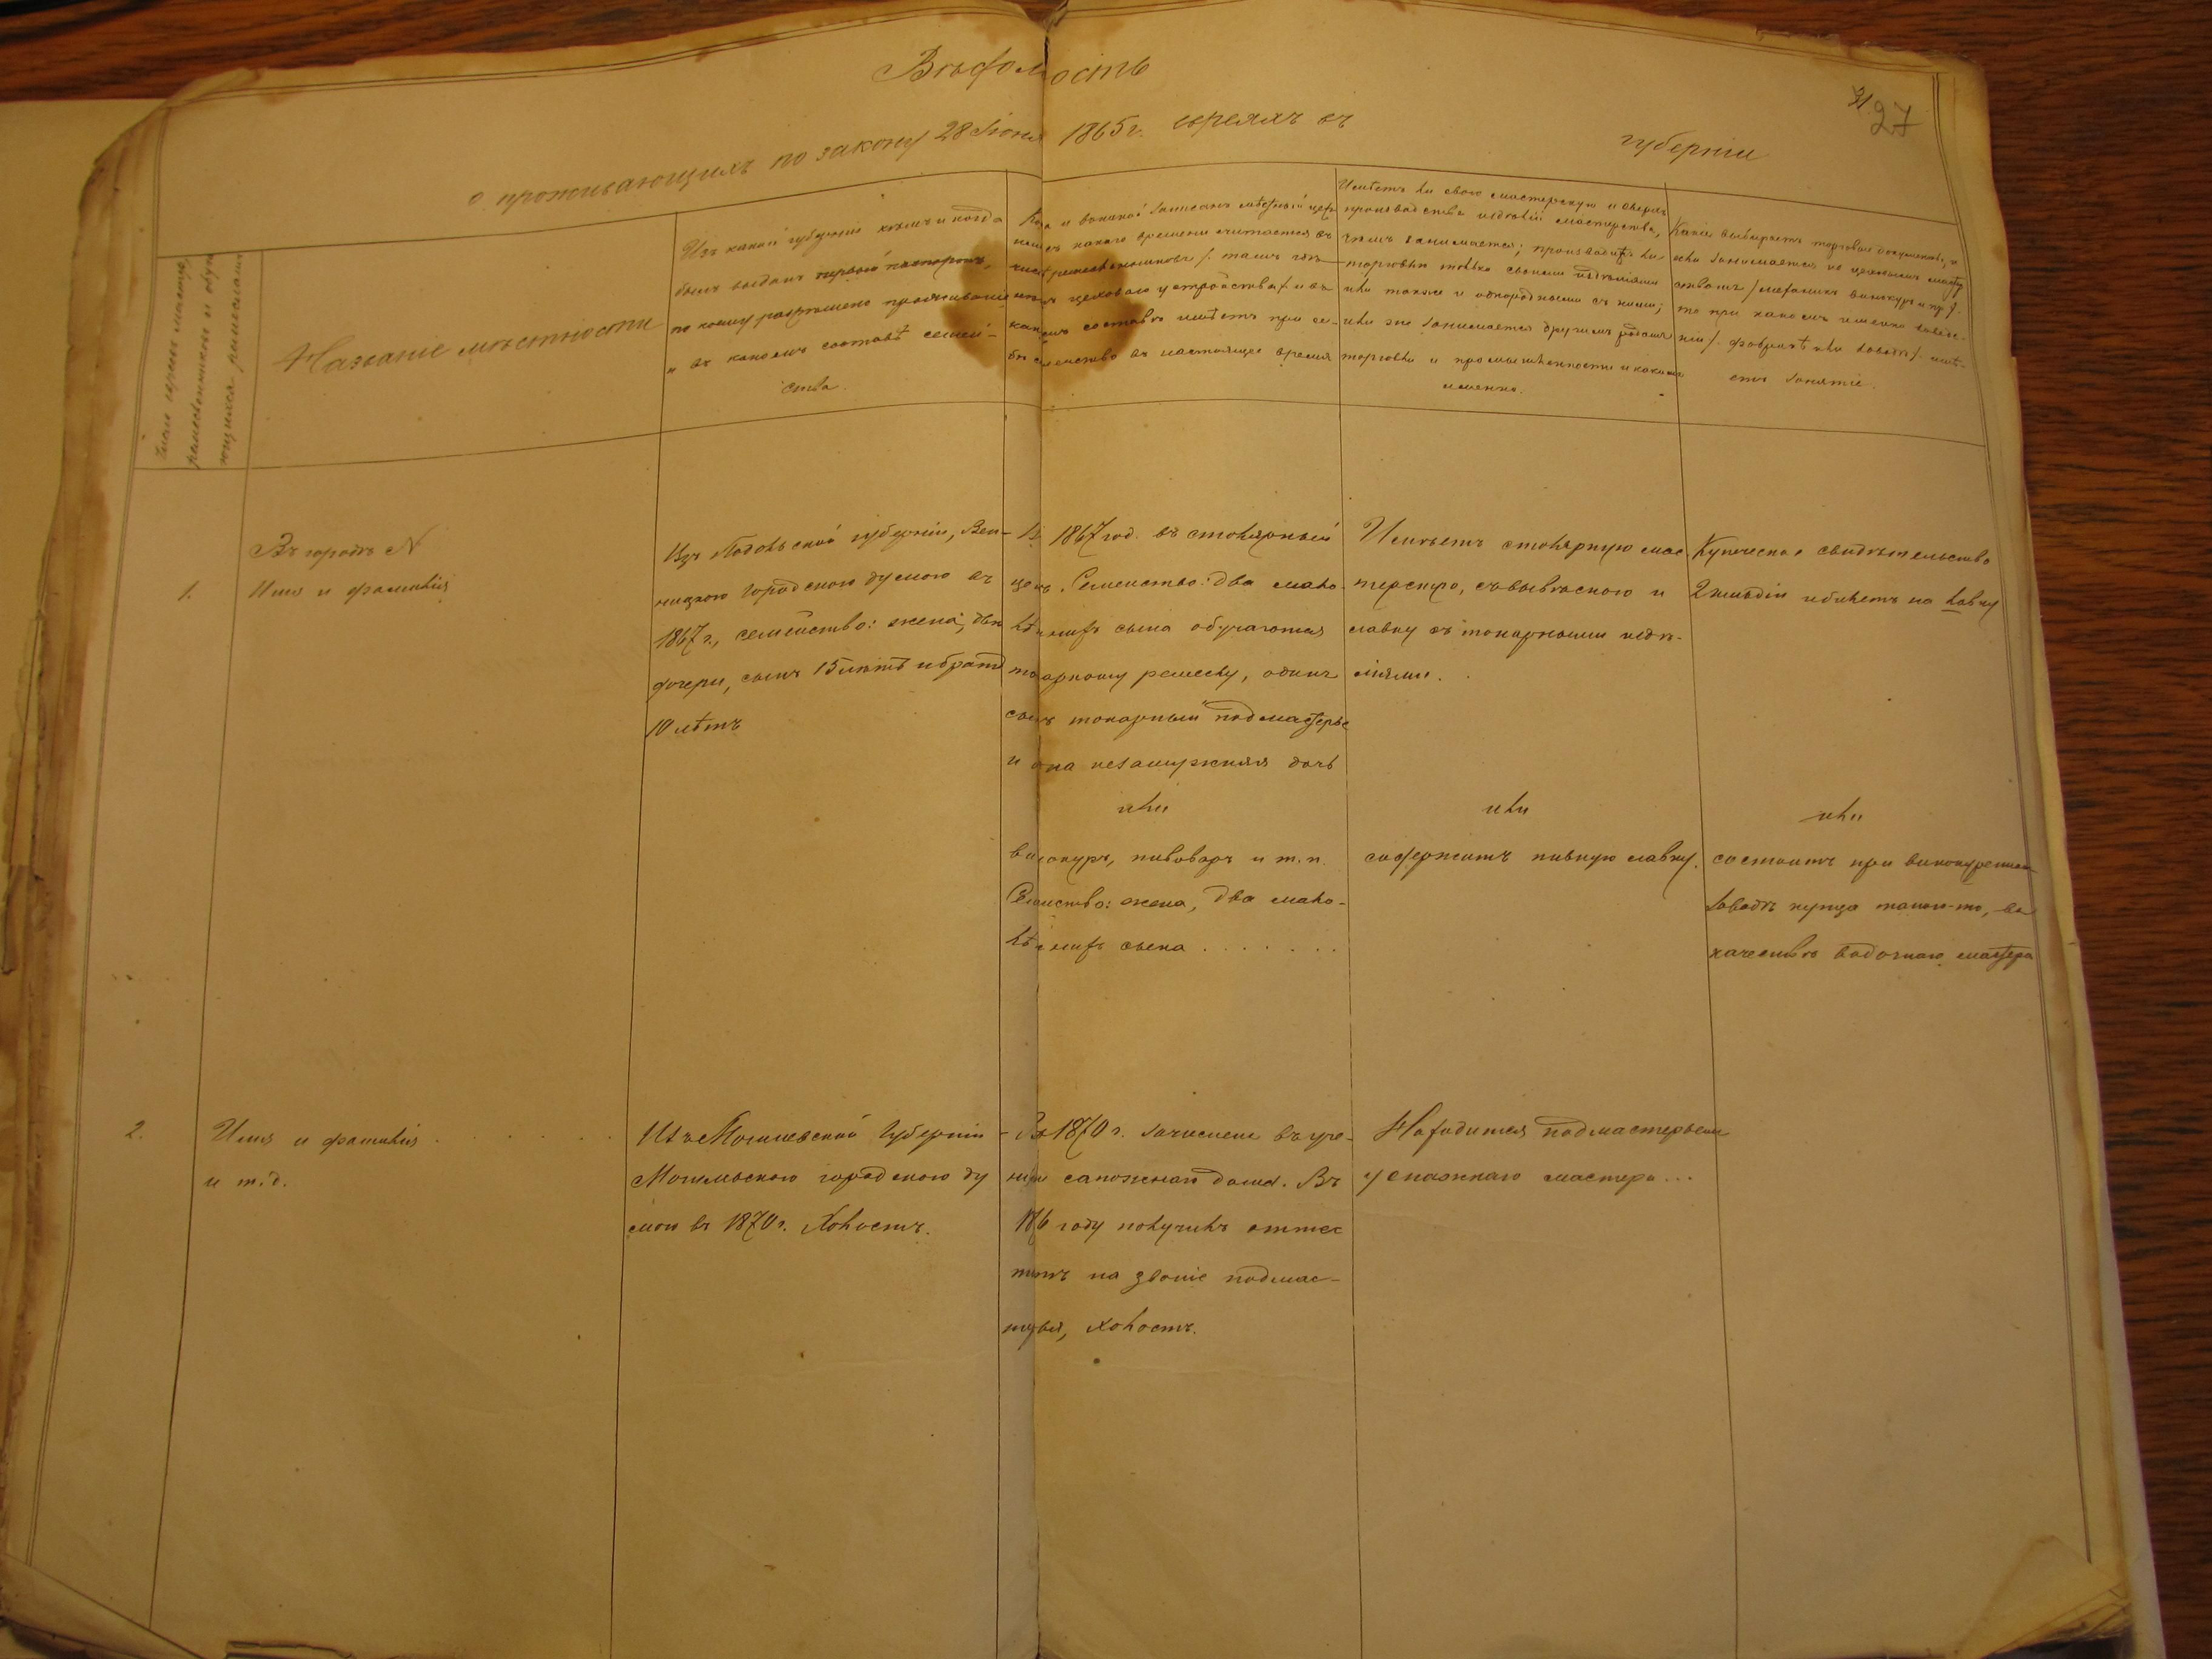 Вѣдомость
31
27
о проживающихъ по закону 28 Іюня 1865 г. евреяхъ въ губерніи
Число евреевъ мастеровъ,
ремесленниковъ и обуча
ющихся ремесламъ
Названіе мѣстности
Изъ какой губерніи кѣмъ и когда
былъ выданъ первый паспортъ,
по коему разрѣшено проживаніе
и въ какомъ составѣ семей-
ства.
Когда и въ какой записанъ мѣстный цехъ
или съ какого времени считается въ
числѣ ремесленниковъ /: тамъ гдѣ
нѣтъ цеховаго устройства :/ и въ
какомъ составѣ имѣетъ при се-
бѣ семейство въ настоящее время
Имѣетъ ли свою мастерскую и сверхъ
производства издѣлій мастерства,
чѣмъ занимается; производитъ ли
торговлю только своими издѣліями
или также и однородными съ ними;
или же занимается другимъ родомъ
торговли и промышленности и какими
именно.
Какіе выбираетъ торговые документы, и
если занимается не цеховымъ мастер
ствомъ /механикъ винокуръ и пр./
то при какомъ именно заведе-
ніи /: фабрикѣ или заводѣ :/ имѣ-
етъ занятіе.
Въ городѣ N
1.
Имя и фамилія
Изъ Подольской губерніи, Вин-
ницкою городскою думою въ
1867 г., семейство: жена, двѣ
дочери, сынъ 15 лѣтъ и братъ
10 лѣтъ
Въ 1867 год. въ столярный
цехъ. Семейство: два мало-
лѣтнихъ сына обучаются
токарному ремеслу, одинъ
сынъ токарный подмастерье
и одна незамужняя дочь
или
винокуръ, пивоваръ и т. п.
Семейство: жена, два мало-
лѣтнихъ сына . . . . . . .
Имѣетъ столярную мас
терскую, съ вывѣскою и
лавку съ токарными издѣ-
ліями.
или
содержитъ пивную лавку.
Купеческое свидѣтельство
2 гильдіи и билетъ на лавку
или
состоитъ при винокуренномъ
заводѣ купца такого-то, въ
качествѣ водочнаго мастера
2.
Имя и фамилія . . . . . .
и т. д.
Изъ Могилевской Губерніи
Могилевскою городскою ду
мою въ 1870 г. Холостъ.
Въ 1870 г. зачисленъ въ уче-
ники сапожнаго дома. Въ
187 6 году получилъ аттес
татъ на званіе подмас-
терья, холостъ.
Находится подмастерьемъ
у сапожнаго мастера . . .